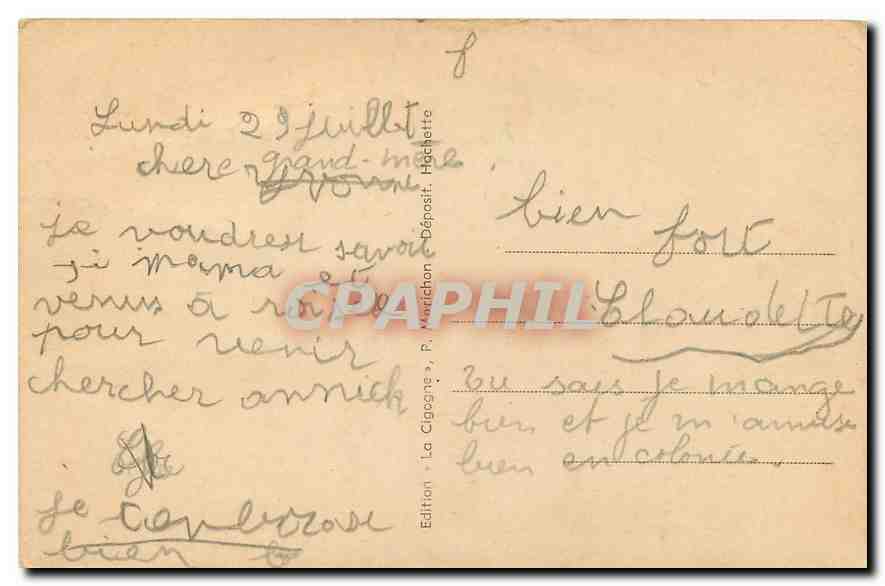 Lundi 29 juillet
chere grand-mère
je voudrer savoir
si mama et
venus a
pour venir
chercher annick
je t'embrasse
bien
bien fort
Claudette
tu sais je mange
bien et je m'amuse
bien en colonie.
Edition « La Cigogne », P. Marichon Déposit. Hachette
CPAPHIL